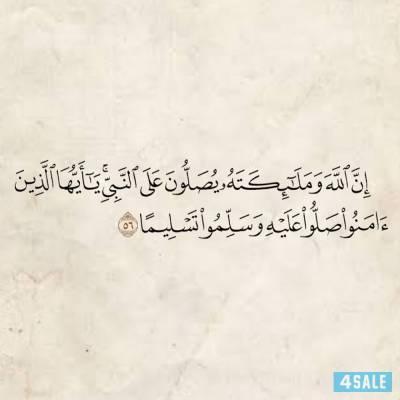 إِنَّ ٱللَّهَ وَمَلَـٰٓئِكَتَهُۥ يُصَلُّونَ عَلَى ٱلنَّبِىِّ ۚ يَـٰٓأَيُّهَا ٱلَّذِينَ
ءَامَنُوا۟ صَلُّوا۟ عَلَيْهِ وَسَلِّمُوا۟ تَسْلِيمًا ٥٦
4SALE